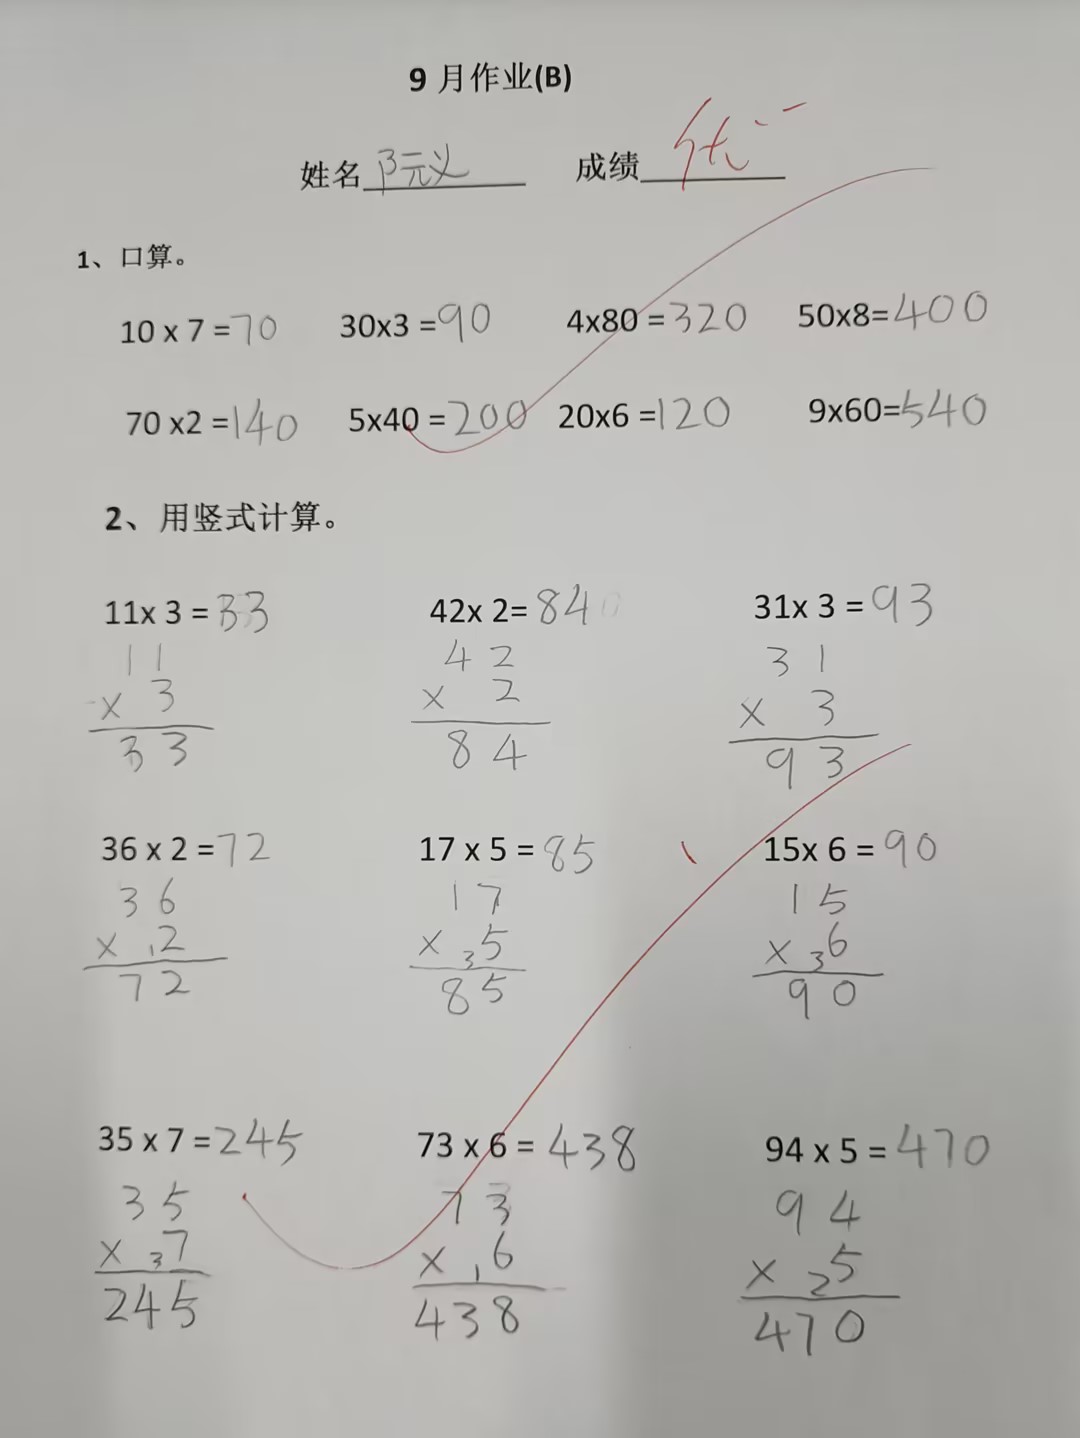 9 月作业(B)
姓名 阮义 成绩 优
1、口算。
10 x 7 =70 30x3 =90 4x80 =320 50x8=400
70 x2 =140 5x40 =200 20x6 =120 9x60=540
2、用竖式计算。
11x 3 =33 42x 2=84 31x 3 =93
11 42 31
x 3 x 2 x 3
33 84 93
36 x 2 =72 17 x 5 =85 15x 6 =90
36 17 15
x 12 x 35 x 36
72 85 90
35 x 7 =245 73 x 6 = 438 94 x 5 =470
35 73 94
x 37 x 16 x 25
245 438 470